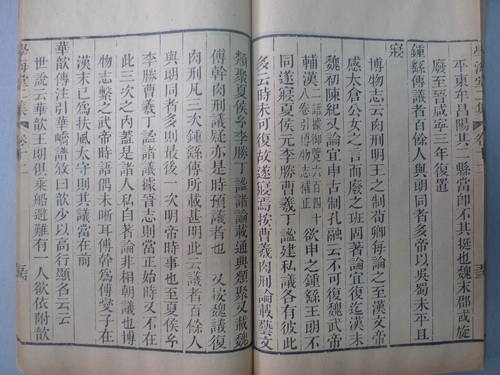 平東牟昌陽其二縣當即不其挺也魏末郡或旋
廢至晉咸寧三年復置
鍾繇傳議者百餘人與朗同者多帝以吳蜀未平且
寢
博物志云肉刑明王之制荀卿每論之至漢文帝
感太倉公女之言而廢之班固著論宜復迄漢末
魏初陳紀又論宜申古制孔融云不可復魏武帝
輔漢二語據御覽六百四十八卷引博物志補正欲申之鍾繇王朗不
同遂寢夏侯元李勝曹羲丁謐建私議各有彼此
多云時未可復故遂寢焉按曹羲肉刑論載藝文
類聚夏侯元李勝丁謐諸論載通典類聚又載魏
傅幹肉刑議疑亦是時預議者也又按魏議復
肉刑凡三次鍾繇傳所載甚明此云議者百餘人
與朗同者多則最後一次明帝時事也至夏侯元
李勝曹羲丁謐議據晉志則當正始時又不在
此三次之內蓋是諸人私自著論非相朝議也博
物志繫之武帝時語偶未晰耳傅幹為傅燮子在
漢末已為扶風太守則其議當在前
華歆傳注引華嶠譜敘曰歆少以高行顯名云云
世說云華歆王朗俱乘船避難有一人欲依附歆
學海堂二集